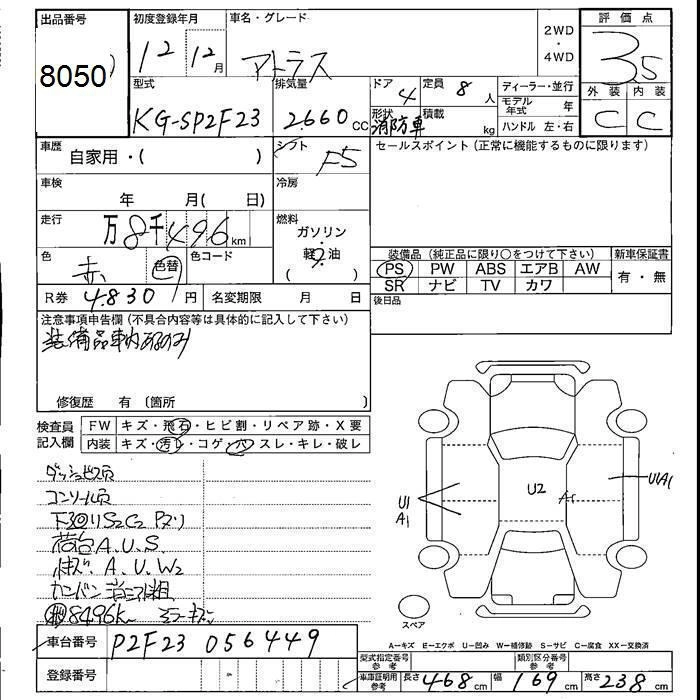 出品番号 初度登録年月 車名・グレード 2WD・4WD 評価点
8050 12 12月 アトラス 3.5
型式 KG-SP2F23 排気量 2660 CC
ドア 4 定員 8人 ディーラー・並行
形状 消防車 積載 kg モデル年式 年
ハンドル 左・右
外装 内装
C C
車歴 自家用・( ) シフト F5 セールスポイント(正常に機能するものに限ります)
車検 年 月( 日) 冷房
走行 万8千496km 燃料 ガソリン
軽油
( )
色 赤 色替 色コード
装備品(純正品に限り○をつけて下さい) 新車保証書
PS PW ABS エアB AW 有・無
SR ナビ TV カワ
R券 4830円 名変期限 月 日 後日品
注意事項申告欄(不具合内容等は具体的に記入して下さい)
装備品車内
修復歴 有(箇所 )
検査員記入欄 FW キズ・飛石・ヒビ割・リペア跡・X要
内装 キズ・汚レ・コゲ・穴・スレ・キレ・破レ
ダッシュビス穴
コンソール穴
下廻りS2C2 Pヌリ
荷台A.U.S.
A.U.W2
カンバン
8496km ミラーキズ
U1 A1 U2 A1 U1A1
スペア
A=キズ E=エクボ U=凹み W=補修跡 S=サビ C=腐食 XX=交換済
車台番号 P2F23 056449
登録番号
型式指定番号 参考 類別区分番号 参考
車庫証明用参考 長さ 468cm 幅 169cm 高さ 238cm